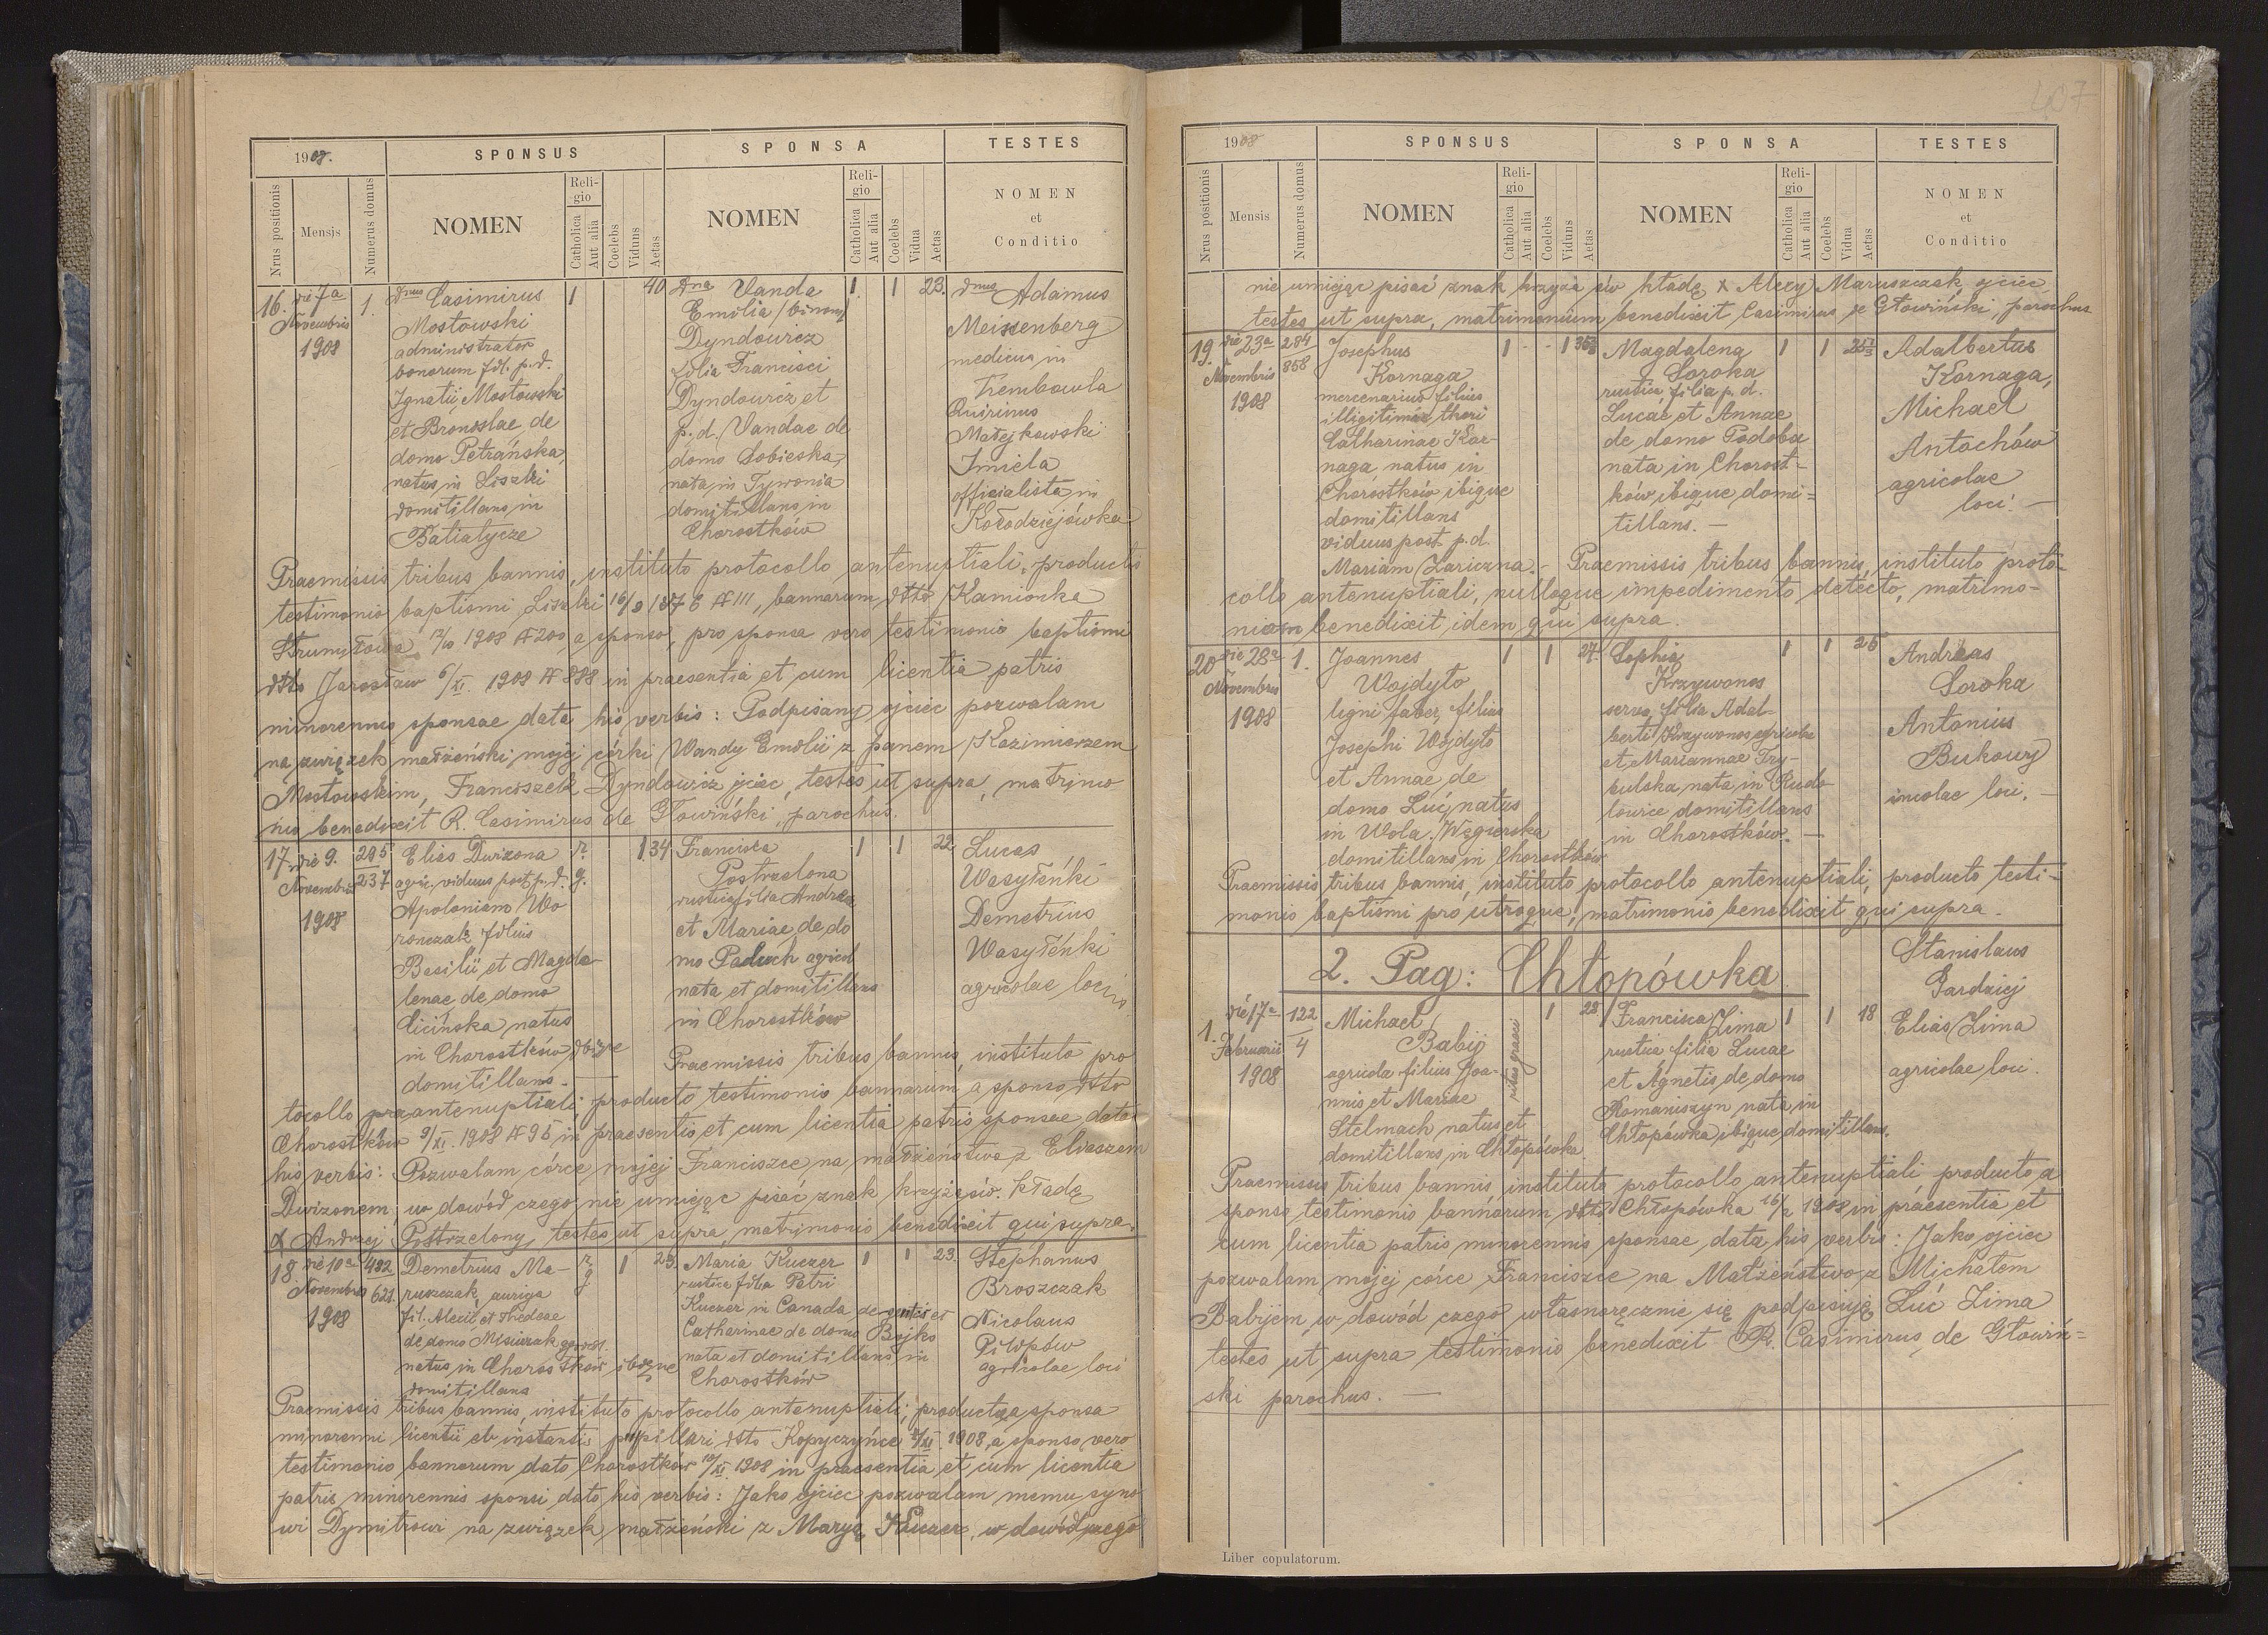 1908.
SPONSUS
SPONSA
TESTES
Nrus positionis
Mensis
Numerus domus
NOMEN
Religio
Catholica
Aut alia
Coelebs
Viduus
Aetas
NOMEN
Religio
Catholica
Aut alia
Coelebs
Vidua
Aetas
NOMEN
et
Conditio
16. die 7a Novembris 1908
1.
Dnus Casimirus
Mostowski
administrator
bonorum fil. p. d.
Ignatii Mostowski
et Bronoslae de
domo Petrańska,
natus in Liszki
domitillans in
Batiatycze
1 40
Dna Vanda
Emilia (binom)
Dyndowicz
filia Francisci
Dyndowicz et
p. d. Vandae de
domo Sobieska,
nata in Tywonia
domitillans in
Chorostków
1. 1 23.
dnus Adamus
Meissenberg
medicus in
Trembowla
Quirinus
Matejkowski
Imiela
officialista in
Kołodziejówka
Praemissis tribus bannis, instituto protocollo antenuptiali, producto
testimonio baptismi Liszki 16/9 1876 № III, bannorum dtto Kamionka
Strumiłowa 12/10 1908 № 200, a sponso, pro sponsa vero testimonio baptismi
dtto Jarosław 6/XI. 1908 № 888 in praesentia et cum licentia patris
minorennis sponsae data his verbis: Podpisany ojciec pozwalam
na związek małżeński mojej córki Wandy Emilii z panem Kazimierzem
Mostowskim, Franciszek Dyndowicz ojciec, testes ut supra, matrimo
nio benedixit R. Casimirus de Głowiński, parochus.
17. die 9. Novembris 1908
295
237
Elias Dwizona
agric. viduus post p. d.
Apoloniam Wo
ronczak filius
Basilii et Magda-
lenae de domo
Cicińska natus
in Chorostków ibique
domitillans.-
r. g. 1 34
Francisca
Postrzelona
rustica filia Andreae
et Mariae de do
mo Paduch agricol
nata et domitillans
in Chorostków
1 1 22
Lucas
Wasyłeńki
Demetrius
Wasyłeńki
agricolae loci
Praemissis tribus bannis, instituto pro
tocollo praantenuptiali, producto testimonio bannorum, a sponso dtto
Chorostków 9/XI. 1908 № 95 in praesentis et cum licentia patris sponsae data
his verbis: Pozwalam córce mojej Franciszce na małżeństwo z Eliaszem
Dwizonem, w dowód czego nie umiejąc pisać znak krzyża św. kładę
X Andrzej Postrzelony, testes ut supra, matrimonio benedixit qui supra.
18. die 10a Novembris 1908
482
621.
Demetrius Ma-
ruszczak, auriga
fil. Alexii et Thedeae
de domo Misiurak
natus in Chorostków ibique
domitillans
r g 1 23.
Maria Kuczer
rustica filia Petri
Kuczer in Canada de gentis et
Catharinae de domo Bojko
nata et domitillans in
Chorostków
1 1 23.
Stephanus
Broszczak
Nicolaus
Piwpów
agricolae loci
Praemissis tribus bannis, instituto protocollo antenuptiali, producta a sponsa
minorenni licentii ab instantii pupillari dtto Kopyczyńce 2/XI. 1908, a sponso vero
testimonio bannorum dato Chorostków 10/XI 1908 in praesentia et cum licentia
patris minorennis sponsi dato his verbis: Jako ojciec pozwalam memu syno
wi Dymitrowi na związek małżeński z Maryą Kuczer, w dowód czego
407
1908
SPONSUS
SPONSA
TESTES
Nrus positionis
Mensis
Numerus domus
NOMEN
Religio
Catholica
Aut alia
Coelebs
Viduus
Aetas
NOMEN
Religio
Catholica
Aut alia
Coelebs
Vidua
Aetas
NOMEN
et
Conditio
nie umiejąc pisać znak krzyża św kładę X Alexy Maruszczak, ojciec,
testes ut supra, matrimonium benedixit Casimirus de Głowiński, parochus
19. die 23a Novembris 1908
284
858
Josephus
Kornaga
mercenarius filius
illigitimix thori
Catharinae Kor-
naga natus in
Chorostków ibique
domitillans
viduus post p. d.
Mariam Zariczna.-
1 - - 1
Magdalena
Soroka
rustica filia p. d.
Lucae et Annae
de domo Podoba
nata in Chorost-
ków ibique domi=
tillans.-
1 1
Adalbertus
Kornaga,
Michael
Antochów
agricolae
loci.-
Praemissis tribus bannis, instituto proto-
collo antenuptiali, nulloque impedimento detecto, matrimo-
nium benedixit idem qui supra.
20 die 28a Novembris 1908
1.
Joannes
Wojdyło
ligni faber, filius
Josephi Wojdyło
et Annae de
domo Luć, natus
in Wola Węgierska
domitillans in Chorostków
1 1 27.
Sophia
Krzywonos
serva, filia Adal-
berti Krzywonos agricolae
et Mariannae Try-
bulska, nata in Rudo
łowice domitillans
in Chorostków.-
1 1 25
Andreas
Soroka
Antonius
Bukowy
incolae loci.-
Praemissis tribus bannis, instituto protocollo antenuptiali, producto testi=
monio baptismi pro utroque, matrimonio benedixit qui supra.
2. Pag: Chłopówka
1. die 17a Februarii 1908
122
4
Michael
Babij
agricola filius Joa-
nnis et Mariae
Stelmach natus et
domitillans in Chłopówka.
ritus graeci
1 28
Francisca Zima
rustica filia Lucae
et Agnetis de domo
Romaniszyn nata in
Chłopówka ibique domitillans.
1 1 18
Stanislaus
Gardziej
Elias Zima
agricolae loci.
Praemissis tribus bannis, instituto protocollo antenuptiali, producto a
sponso testimonio bannorum dtto Chłopówka 16/2 1908 in praesentia et
cum licentia patris minorennis sponsae data his verbis: Jako ojciec
pozwalam mojej córce Franciszce na Małżeństwo z Michałem
Babijem, w dowód czego własnoręcznie się podpisuję Łuć Zima
testes ut supra testimonio benedixit R. Casimirus de Głowiń=
ski parochus.-
Liber copulatorum.